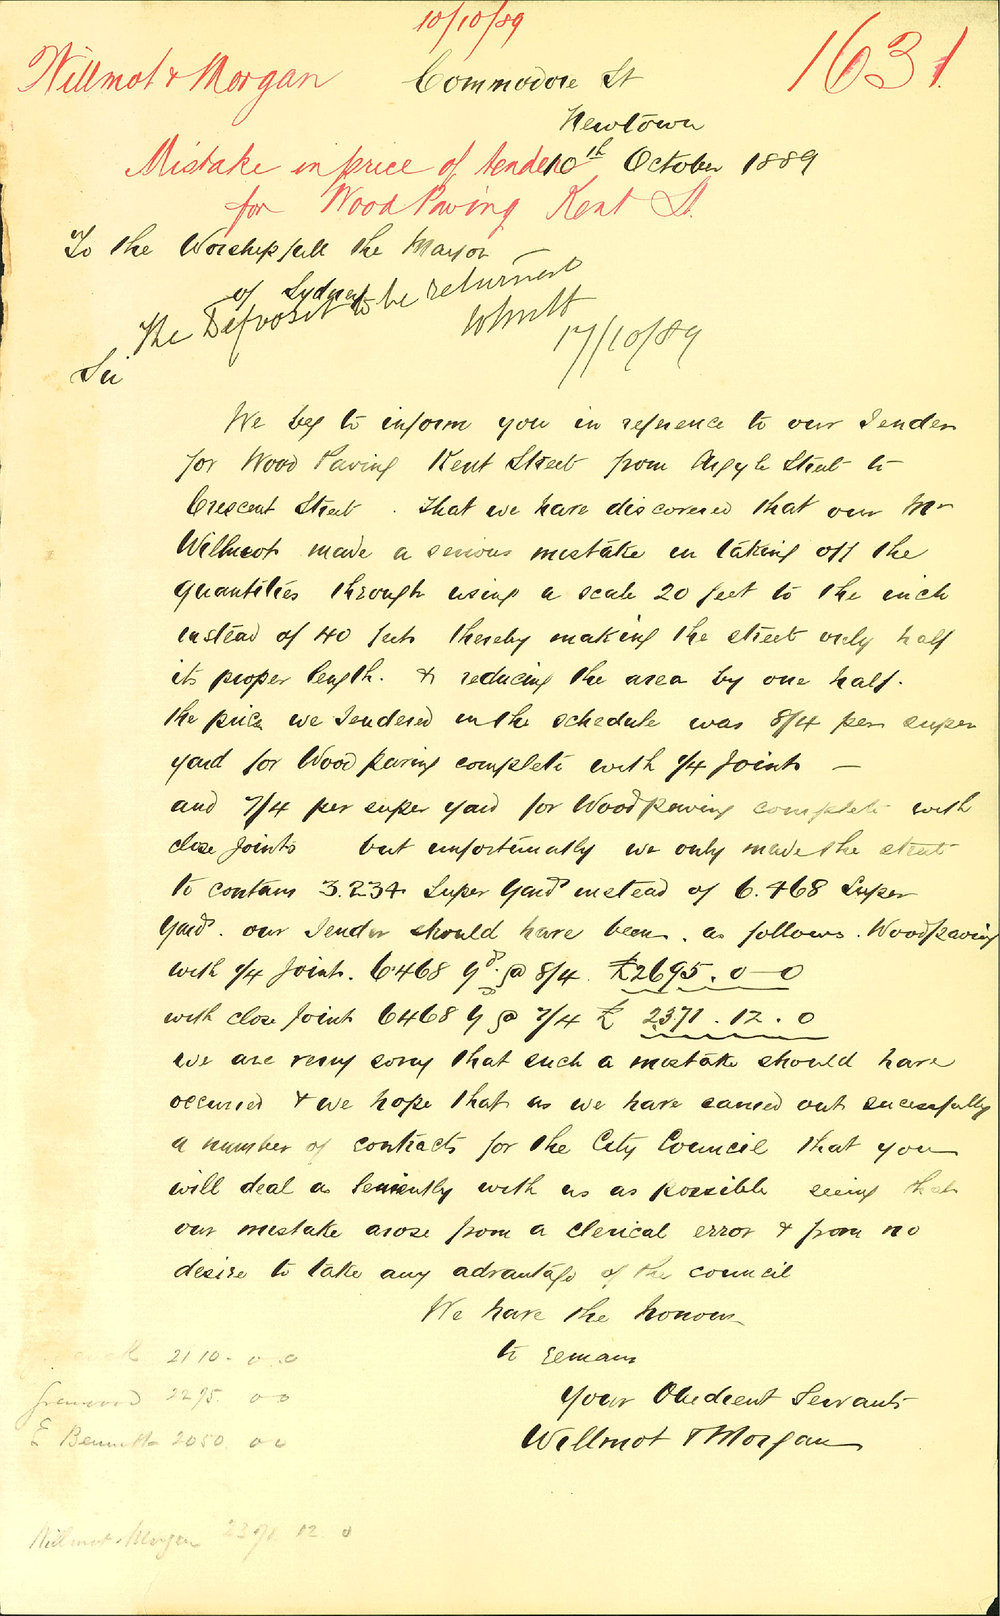 10/10/89
Willmot & Morgan
Commodore St
1631
Newtown
Mistake in price of tender
10th October 1889
for Wood Paving Kent St.
To the Worshipfull the Mayor
of Sydney
The Deposit to be returned
17/10/89
Sir
We beg to inform you in reference to our Tender
for Wood Paving Kent Street from Argyle Street to
Crescent Street . that we have discovered that our Mr
Willmot made a serious mistake in taking off the
quantities through using a scale 20 feet to the inch
instead of 40 feet thereby making the street only half
its proper length. & reducing the area by one half.
the price we Tendered in the schedule was 8/4 per super
yard for Wood paving complete with 1/4 Joints —
and 7/4 per super yard for Woodpaving complete with
close Joints but unfortunatly we only made the street
to contain 3.234 Super Yards instead of 6.468 Super
Yards. our Tender should have been. as follows. Woodpaving
with 1/4 Joint. 6468 yds @ 8/4 £2695.0-0
with close Joint 6468 y @ 7/4 £ 2371.12.0
we are very sorry that such a mistake should have
occurred & we hope that as we have carried out sucessfully
a number of contracts for the City Council that you
will deal as leniently with us as possible seeing that
our mistake arose from a clerical error & from no
desire to take any advantage of the council
We have the honour
to remain
Your Obedient Servants
Willmot & Morgan
2110. 0.0
2295. 0 0
E Bennett 2050. 0 0
Willmot & Morgan 2371 12. 0